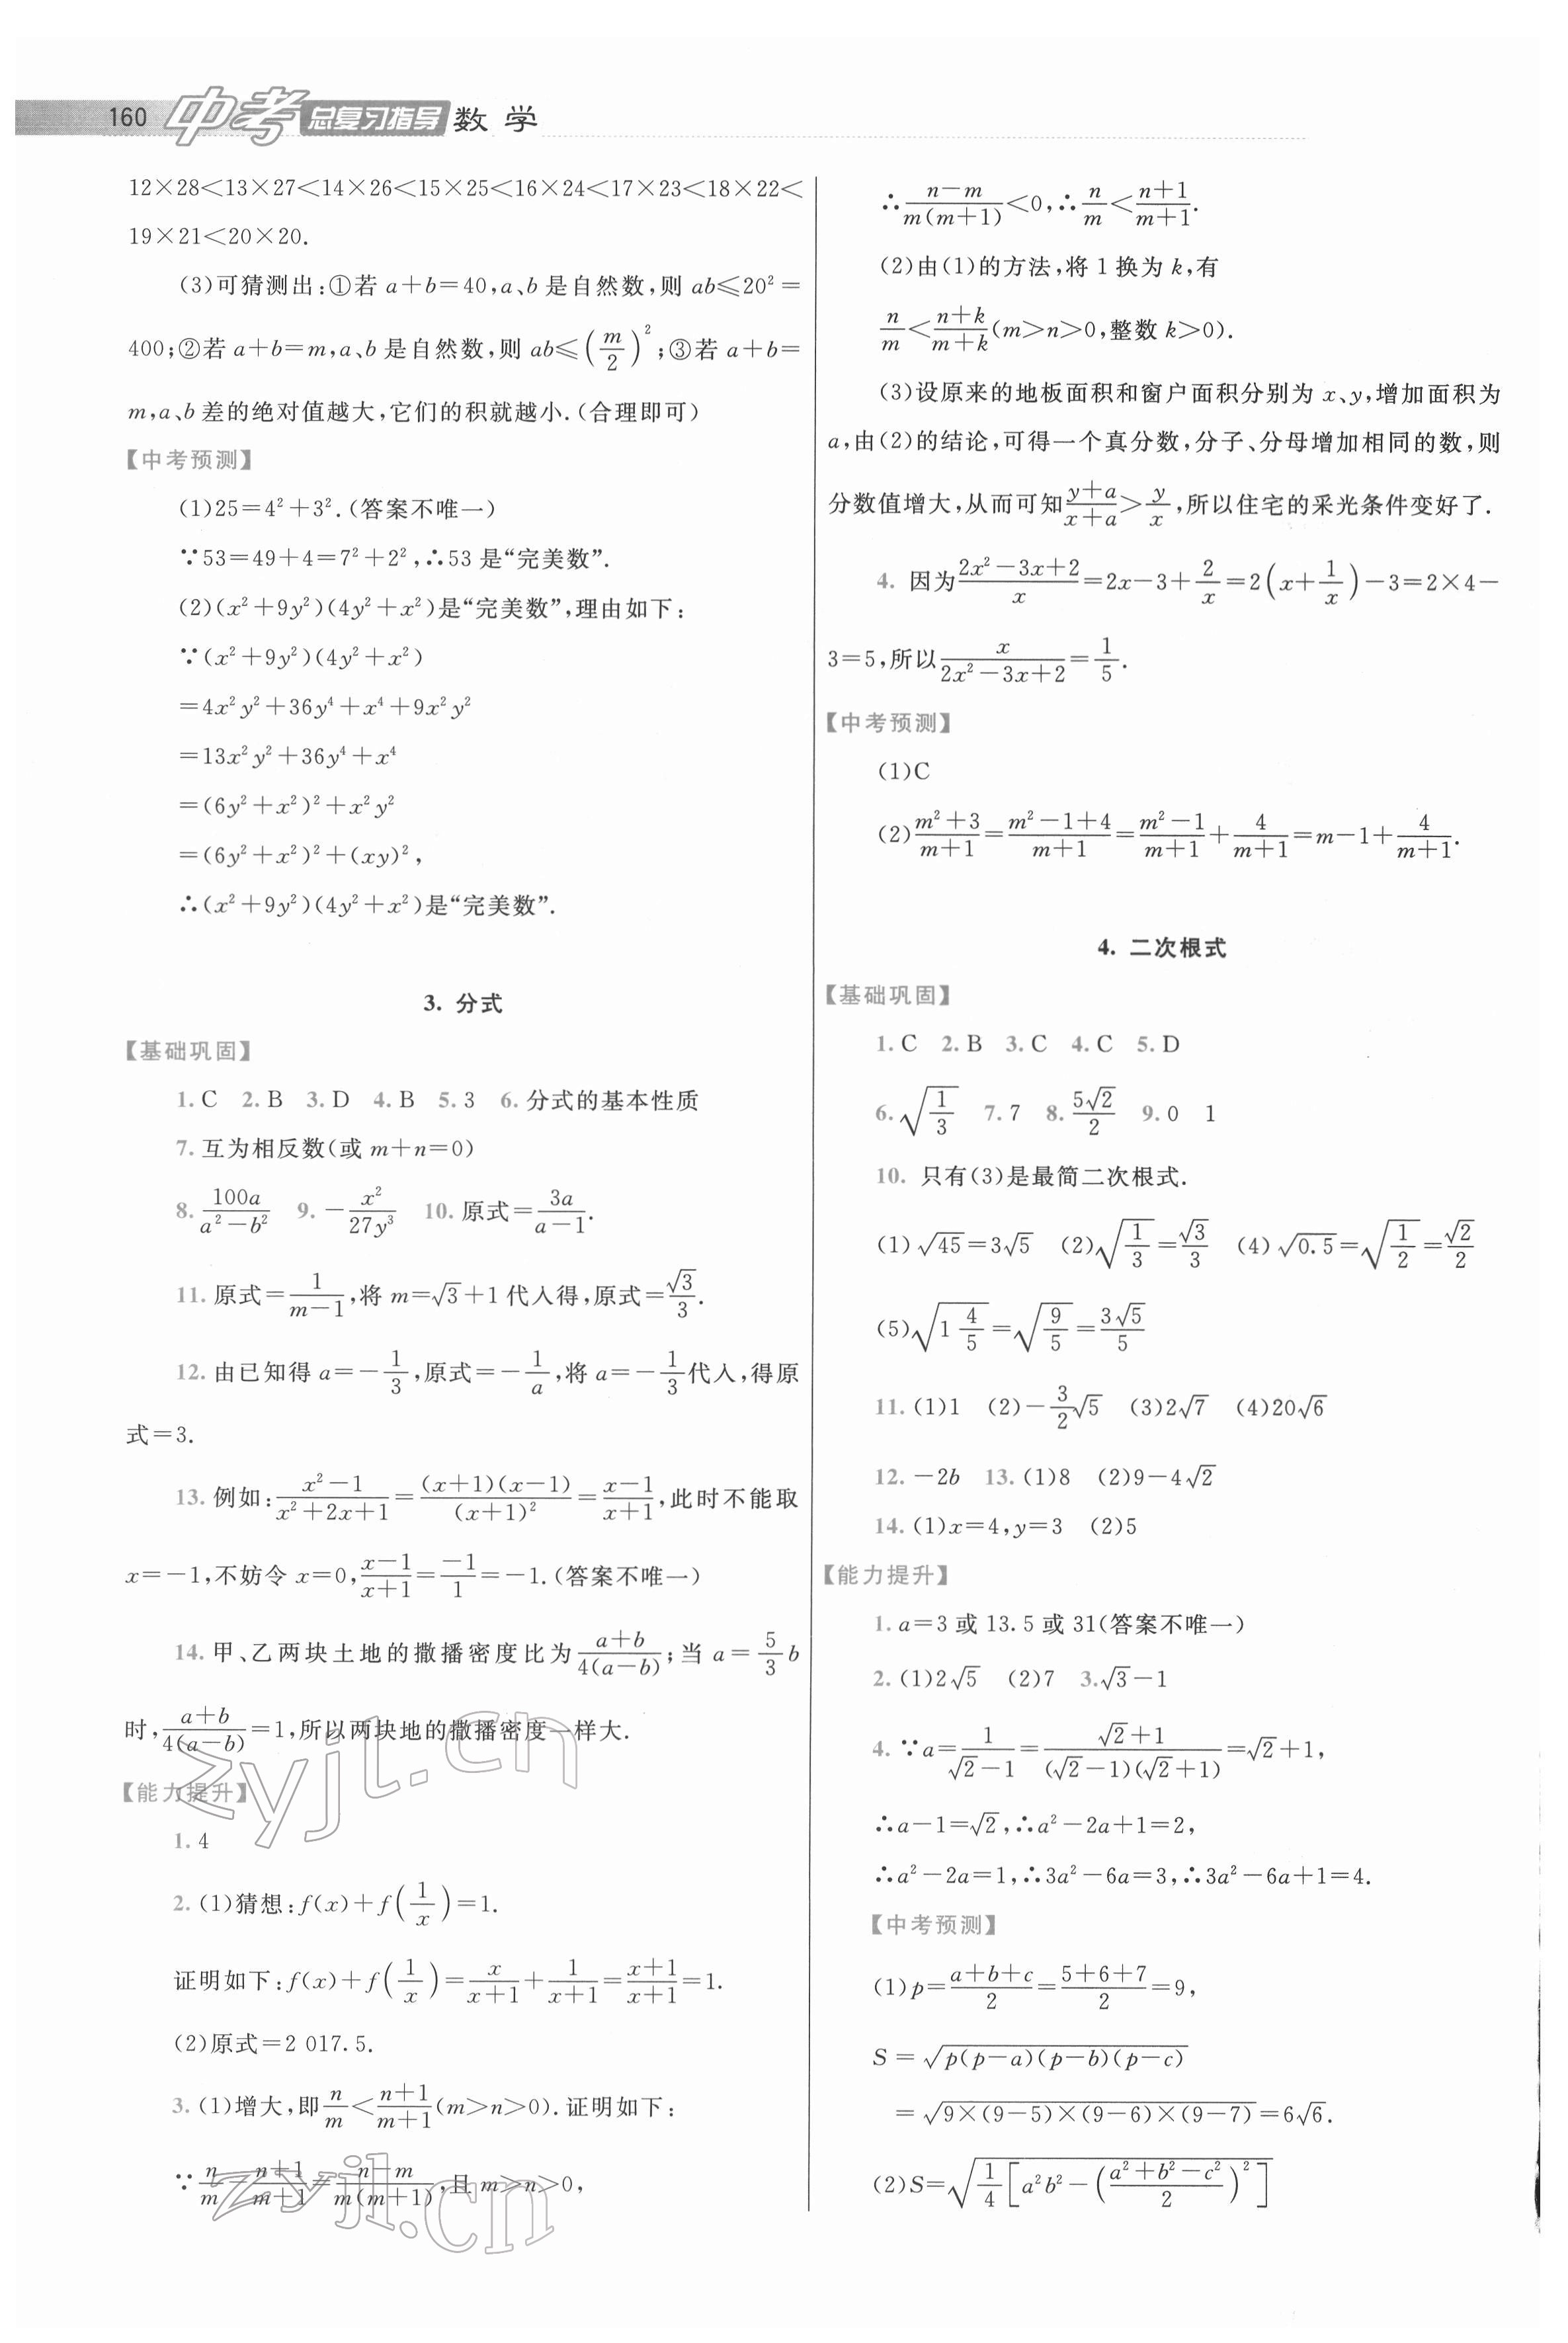 160 中考 总复习指导 数学
12×28＜13×27＜14×26＜15×25＜16×24＜17×23＜18×22＜
19×21＜20×20.
(3)可猜测出:①若 a+b=40,a、b 是自然数,则 ab≤20²=
400;②若 a+b=m,a、b 是自然数,则 ab≤(m/2)²;③若 a+b=
m,a、b 差的绝对值越大,它们的积就越小.(合理即可)
【中考预测】
(1)25=4²+3².(答案不唯一)
∵53=49+4=7²+2²,∴53 是“完美数”.
(2)(x²+9y²)(4y²+x²)是“完美数”,理由如下:
∵(x²+9y²)(4y²+x²)
=4x²y²+36y⁴+x⁴+9x²y²
=13x²y²+36y⁴+x⁴
=(6y²+x²)²+x²y²
=(6y²+x²)²+(xy)²,
∴(x²+9y²)(4y²+x²)是“完美数”.
3. 分式
【基础巩固】
1. C 2. B 3. D 4. B 5. 3 6. 分式的基本性质
7. 互为相反数(或 m+n=0)
8. 100a/(a²-b²) 9. -x²/(27y³) 10. 原式=3a/(a-1).
11. 原式=1/(m-1),将 m=√3+1 代入得,原式=√3/3.
12. 由已知得 a=-1/3,原式=-1/a,将 a=-1/3代入,得原
式=3.
13. 例如:(x²-1)/(x²+2x+1)=(x+1)(x-1)/(x+1)²=(x-1)/(x+1),此时不能取
x=-1,不妨令 x=0,(x-1)/(x+1)=-1/1=-1.(答案不唯一)
14. 甲、乙两块土地的撒播密度比为(a+b)/4(a-b);当 a=5/3 b
时,(a+b)/4(a-b)=1,所以两块地的撒播密度一样大.
【能力提升】
1. 4
2. (1)猜想:f(x)+f(1/x)=1.
证明如下:f(x)+f(1/x)=x/(x+1)+1/(x+1)=(x+1)/(x+1)=1.
(2)原式=2 017.5.
3. (1)增大,即n/m＜(n+1)/(m+1)(m>n>0).证明如下:
∵n/m-(n+1)/(m+1)=(n-m)/m(m+1),且 m>n>0,
∴(n-m)/m(m+1)＜0,∴n/m＜(n+1)/(m+1).
(2)由(1)的方法,将 1 换为 k,有
n/m＜(n+k)/(m+k)(m>n>0,整数 k>0).
(3)设原来的地板面积和窗户面积分别为 x、y,增加面积为
a,由(2)的结论,可得一个真分数,分子、分母增加相同的数,则
分数值增大,从而可知(y+a)/(x+a)>y/x,所以住宅的采光条件变好了.
4. 因为(2x²-3x+2)/x=2x-3+2/x=2(x+1/x)-3=2×4-
3=5,所以x/(2x²-3x+2)=1/5.
【中考预测】
(1)C
(2)(m²+3)/(m+1)=(m²-1+4)/(m+1)=(m²-1)/(m+1)+4/(m+1)=m-1+4/(m+1).
4. 二次根式
【基础巩固】
1. C 2. B 3. C 4. C 5. D
6. √(1/3) 7. 7 8. 5√2/2 9. 0 1
10. 只有(3)是最简二次根式.
(1)√45=3√5 (2)√(1/3)=√3/3 (4)√0.5=√(1/2)=√2/2
(5)√(1 4/5)=√(9/5)=3√5/5
11. (1)1 (2)-3/2√5 (3)2√7 (4)20√6
12. -2b 13. (1)8 (2)9-4√2
14. (1)x=4,y=3 (2)5
【能力提升】
1. a=3 或 13.5 或 31(答案不唯一)
2. (1)2√5 (2)7 3. √3-1
4. ∵a=1/(√2-1)=(√2+1)/(√2-1)(√2+1)=√2+1,
∴a-1=√2,∴a²-2a+1=2,
∴a²-2a=1,∴3a²-6a=3,∴3a²-6a+1=4.
【中考预测】
(1)p=(a+b+c)/2=(5+6+7)/2=9,
S=√(p(p-a)(p-b)(p-c))
=√(9×(9-5)×(9-6)×(9-7))=6√6.
(2)S=√(1/4[a²b²-((a²+b²-c²)/2)²])
zyjl.cn
zyjl.cn